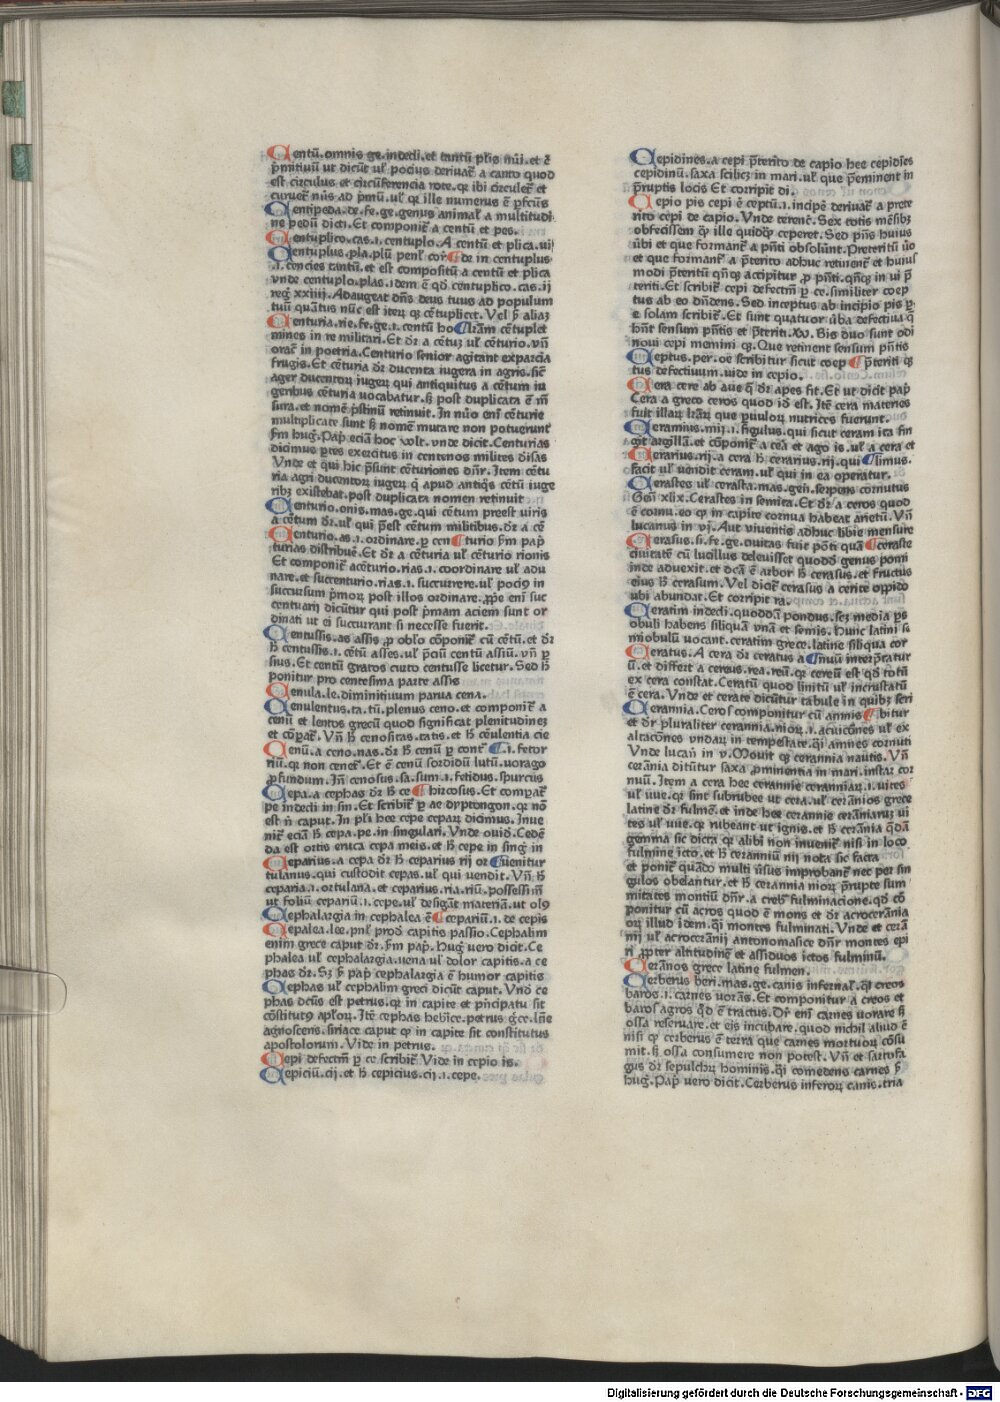 Centū.omnis ge.indecli.et tantū pl̄is nūi.et ē
p̄mitiuū ut dicūt ul' pocius deriuat̄ a canto quod
est circulus et circūferencia rote.qꝛ ibi circulet̄ et
curuet̄ nūs ad p̄mū.ul' qꝛ ille numerus ē ꝑfcūs
Centipeda.de.fe.ge.genus animal' a multitudi
ne pedū dicti.Et componit̄ a centū et pes.
Centuplico.cas.i.centuplo.A centū et plica.ui'
Centuplus.pla.plū penl' cor̄ ¶de in centuplus
.i.cencies tantū.et est compositū a centū et plica
vnde centuplo.plas.idem ē qđ centuplico.cas.ij
reg̃ xxiiij.Adaugeat dn̄s deus tuus ad populum
tuū quātus nūc est iteꝝ qꝫ cētuplicit.Vel p̄ aliaꝫ
Centuria.rie.fe.ge.i.centū ho ¶l'ram cētuplet
mines in re militari.Et dr̄ a cētuꝫ ul' cēturio.vn̄
orac̄ in poetria.Centurio senior agitant exparcia
frugis.Et cēturia dr̄ ducenta iugera in agris.sic̄
ager ducentoꝝ iugeꝝ qui antiquitus a cētum iu
geribus cēturia uocabatur.sꝫ post duplicata ē m̄
sura.et nomē p̄stinū retinuit.In nūo enī cēturie
multiplicate sunt sꝫ nomē mutare non potuerunt
fm hug̃.Pap̄ eciā hoc volt.vnde dicit.Centurias
dicimus ꝑtes exercitus in centenos milites diīsas
Vnde et qui hic p̄sunt cēturiones dn̄r.Item cētu
ria agri ducentoꝝ iugeꝝ q̄ apud antiq̄s cētū iuge
ribꝫ existebat.post duplicata nomen retinuit
Centurio.onis.mas.ge.qui cētum preest uiris
a cētum dr̄.ul' qui p̄est cētum militibus.dr̄ a cē
Centurio.as.i.ordinare.ꝑ cen ¶turio fm pap̄
turias distribuē.Et dr̄ a cēturia ul' cēturio rionis
Et componit̄ acēturio.rias.i.coordinare ul' adu
nare.et succenturio.rias.i.succurrere.ul' poci9 in
succursum p̄moꝝ post illos ordinare.ꝓpe enī suc
centuarij dicūtur qui post p̄mam aciem sunt or
dinati ut ei succurrant si necesse fuerit.
Centussis.as assis.ꝓ oblo cōponit̄ cū cētū.et dr̄
h̄ centussis.i.cētū asses.ul' p̄ciū centū assiū.vn̄ ꝑ
sius.Et centū gratos curto centusse licetur.Sed h̄
ponitur pro centesima parte assis
Cenula.le.diminitiuum parua cena.
Cenulentus.ta.tū.plenus ceno.et componit̄ a
cenū et lentos grecū quod significat plenitudineꝫ
et cōparat̄.Vn̄ h̄ cenositas.tatis.et h̄ cēulentia cie
Cenū.a ceno.nas.dr̄ h̄ cenū ꝑ contr̄ ¶.i.fetor
riū.qꝛ non cenet̄.Et ē cenū sordidū lutū.uorago
ꝓfundum.In̄ cenosus.sa.sum.i.fetidus.spurcus
Cepa.a cephas dr̄ h̄ ce ¶hircosus.Et comparat̄
pe indecli in sin.Et scribit̄ ꝑ ae dyptongon.qꝛ nō
est n̄ caput.In pl'i hee cepe ceparꝝ dicimus.Inue
nit̄ eciā h̄ cepa.pe.in singulari.Vnde ouid̄.Cedē
da est ortis eruca cepa meis.et h̄ cepe in sing̃ in
Ceparius.a cepa dr̄ h̄ ceparius rij or ¶uenitur
tulanus.qui custodit cepas.ul' qui uendit.Vn̄ h̄
ceparia.i.ortulana.et ceparius.ria.riū.possessiū
ut foliū cepariū.i.cepe.ul' desig̃at materiā.ut ol9
Cephalargia in cephalea ē ¶cepariū.i.de cepis
Cepalea.lee.pnl' prod̄ capitis passio.Cephalim
enim grece caput dr̄.fm pap̄.Hug̃ uero dicit.Ce
phalea ul' cephalargia.uena ul' dolor capitis.a ce
phas dr̄.Sꝫ p̄ pap̄ cephalargia ē humor capitis
Cephas ul' cephalim greci dicūt caput.Vnd̄ ce
phas dcūs est petrus.qꝛ in capite et p̄ncipatu sit
cōstitut9 apl'oꝝ.Itē cephas heb̄ice.petrus g̃ce.ln̄e
agnoscens.siriace caput qꝛ in capite sit constitutus
apostolorum.Vide in petrus.
Cepi defectm̄ ꝑ ce scribit̄ Vide in cepio is.
Cepiciū.cij.et h̄ cepicius.cij.i.cepe.
Cepidines.a cepi p̄terito de capio hee cepidīes
cepidinū.saxa scilicꝫ in mari.ul' que p̄eminent in
p̄ruptis locis Et corripit di.
Cepio pis cepi ē ceptū.i.incipē deriuat̄ a prete
rito cepi de capio.Vnde terenc̄.Sex totis mēsibꝫ
obfecissem qꝫ ille quidqꝫ ceperet.Sed pn̄s huius
ūbi et que formant̄ a pn̄ti obsolūnt.Preteritū ūo
et que formant̄ a p̄terito adhuc retinent̄ et huius
modi p̄teritū qn̄qꝫ accipitur ꝓ pn̄ti.qn̄qꝫ in ui p̄
teriti.Et scribit̄ cepi defectm̄ ꝑ ce.similiter coep
tus ab eo dn̄dens.Sed inceptus ab incipio pis ꝑ
e solam scribit̄.Et sunt quatuor ūba defectiua q̄
hn̄t sensum pn̄tis et p̄teriti.Vn̄.Bis duo sunt odi
noui cepi memini qꝫ.Que retinent sensum pn̄tis
Ceptus.per.oe scribitur sicut coep ¶p̄teriti qꝫ
tus defectiuum.uide in cepio.
Cera cere ab aue q̄ dr̄ apes fit.Et ut dicit pap̄
Cera a greco ceros quod id̄ est.Itē cera materies
fuit illaꝝ lr̄aꝝ que puuloꝝ nutrices fuerunt.
Ceramius.mij.i.figulus.qui sicut ceram ita fin
git argillā.et cōponit̄ a cea et ago is.ul' a cera et
Cerarius.rij.a cera h̄ cerarius.rij.qui ¶limus.
facit ul' uendit ceram.ul' qui in ea operatur.
Cerastes ul' cerasta.mas.gen̄.serpens cornutus
Gen̄ xlix.Cerastes in semita.Et dr̄ a ceros quod
ē cornu.eo qꝫ in capite cornua habeat arietū.Vn̄
lucanus in vj.Aut viuentis adhuc libie mensure
Cerasus.si.fe.ge.ciuitas fuit pōti quā ¶ceraste
ciuitatē cū lucillus deleuisset quodd̄ genus pomi
inde aduexit.et dcā ē arbor h̄ cerasus.et fructus
eius h̄ cerasum.Vel dict̄ cerasus a cerite oppido
ubi abundat.Et corripit ra.
Ceratim indecli.quoddā pondus.scꝫ media ꝑs
obuli habens siliquā vnā et semis.hunc latini se
miobulū uocant.ceratim grece.latine siliqua cor
Ceratus.A cera dr̄ ceratus a ¶nuū interp̄tatur
ū.et differt a cereus.rea.reū.qꝛ cereū est qđ totū
ex cera constat.Ceratū quod linitū ul' incrustatū
ē cera.Vnde et cerate dicūtur tabule in quibꝫ scri
Cerannia.Ceros componitur cū amnis ¶bitur
et dr̄ pluraliter cerannia.nioꝝ.i.acuicōnes ul' ex
altacōnes vndaꝝ in tempestate.q̄i amnes cornuti
Vnde lucan̄ in v.Mouit qꝫ cerannia nautis.Vn̄
cerānia dicūtur saxa ꝓminentia in mari.instar cor
nuū.Item a cera hee cerannie ceranniaꝝ.i.uites
ul' uue.qꝛ sint subrubee ut cera.ul' cerānios grece
latine dr̄ fulmē.et inde hee cerannie cerāniaruꝫ ui
tes ul' uue.qꝛ rubeant ut ignis.et h̄ cerānia q̄dā
gemma sic dicta qꝛ alibi non inuenit̄ nisi in loco
fulmine icto.et h̄ ceranniū nij nota sic facta
et ponit̄ quādo multi ūsus improbant̄ nec per sin
gulos obelantur.et h̄ cerannia nioꝝ p̄rupte sum
mitates montiū dn̄r.a creb̄ fulminacione.qđ cō
ponitur cū acros quod ē mons et dr̄ acrocerānia
oꝝ illud idem.q̄i montes fulminati.Vnde et cerā
nij ul' acrocerānij antonomasice dn̄r montes epi
ri ꝓpter altitudinē et assiduos ictos fulminū.
Cerānos grece latine fulmen.
Cerberus beri.mas.ge.canis infernal'.q̄i creos
baros.i.carnes uorās.Et componitur a creos et
baros agros qđ ē tractus.Dr̄ enī carnes uorare sꝫ
ossa reseruare.et eis incubare.quod nichil aliud ē
nisi qꝫ cerberus ē terra que carnes mortuoꝝ cōsu
mit.sꝫ ossa consumere non potest.Vn̄ et sarcofa
gus dr̄ sepulchꝝ hominis.q̄i comedens carnes p̄
hug̃.Pap̄ uero dicit.Cerberus inferoꝝ canis.tria
Digitalisierung gefördert durch die Deutsche Forschungsgemeinschaft - DFG